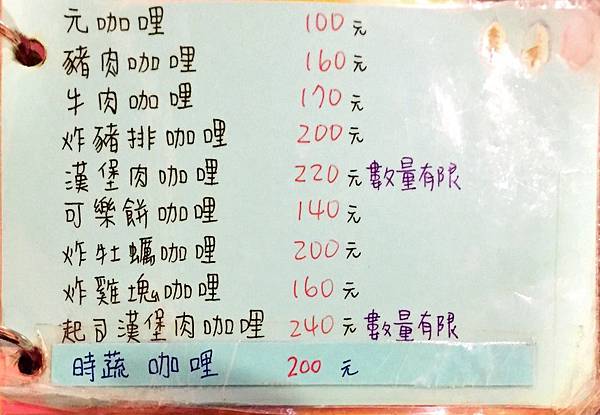 元咖哩 100元
豬肉咖哩 160元
牛肉咖哩 170元
炸豬排咖哩 200元
漢堡肉咖哩 220元 數量有限
可樂餅咖哩 140元
炸牡蠣咖哩 200元
炸雞塊咖哩 160元
起司漢堡肉咖哩 240元 數量有限
時蔬 咖哩 200 元